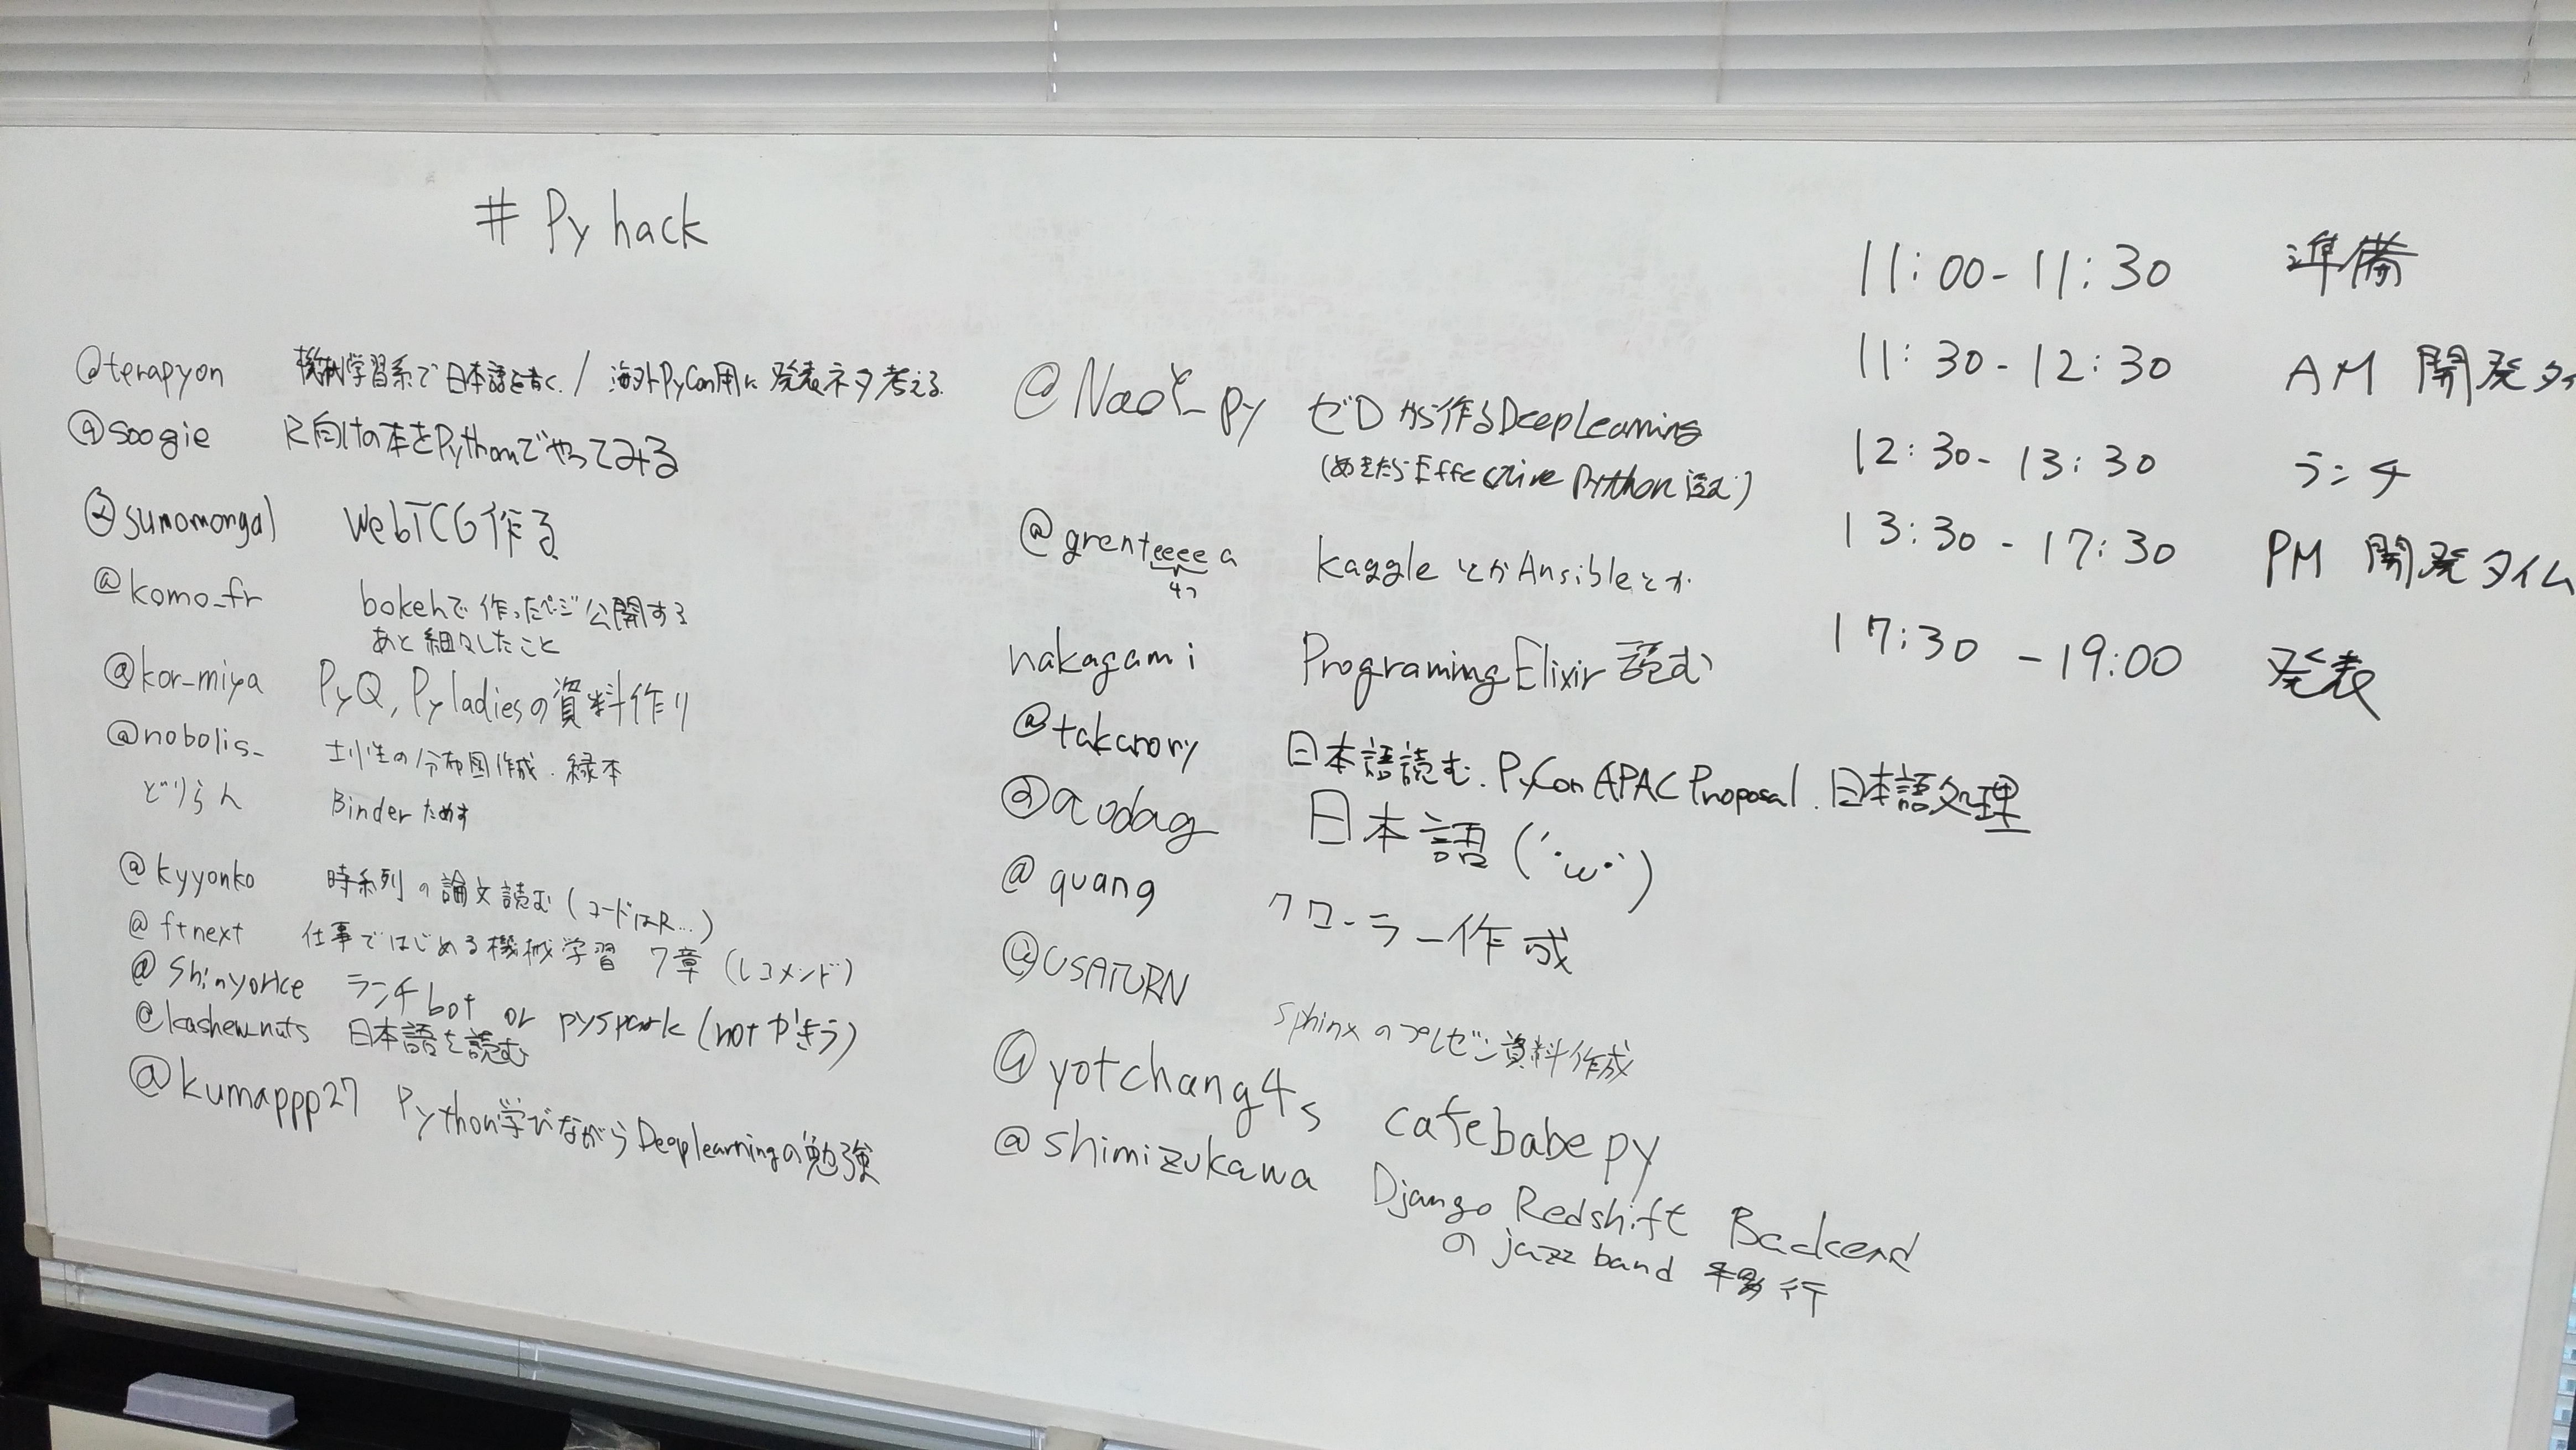 # Pyhack
@terapyon 機械学習系で日本語を書く / 海外PyCon用に発表ネタ考える
@soogie R向けの本をPythonでやってみる
@sumomonga1 WebTCG作る
@komo_fr bokehで作ったページ公開する
あと細々したこと
@kor_miya PyQ, Pyladiesの資料作り
@nobolis_ の分布図作成. 緑本
どりらん Binder ためす
@kyyonko 時系列の論文読む (コードはR...)
@ftnext 仕事ではじめる機械学習 7章 (レコメンド)
@shinyorke ランチbot or pyspark (not かきう)
@kashew_nuts 日本語を読む
@kumappp27 Python学びながらDeeplearningの勉強
@NaoY_py ゼロから作るDeepLearning
(あきたらEffective Python読む)
@grenteeeea kaggleとかAnsibleとか
4つ
nakagami Programing Elixir 読む
@takanory 日本語読む. PyCon APAC Proposal. 日本語処理
@aodag 日本語 (´･ω･`)
@quang クローラー作成
@USATURN Sphinxのプレゼン資料作成
@yotchang4s cafebabepy
@shimizukawa Django Redshift Backend
の jazzband 移行
11:00 - 11:30 準備
11:30 - 12:30 AM 開発タイ
12:30 - 13:30 ランチ
13:30 - 17:30 PM 開発タイム
17:30 - 19:00 発表